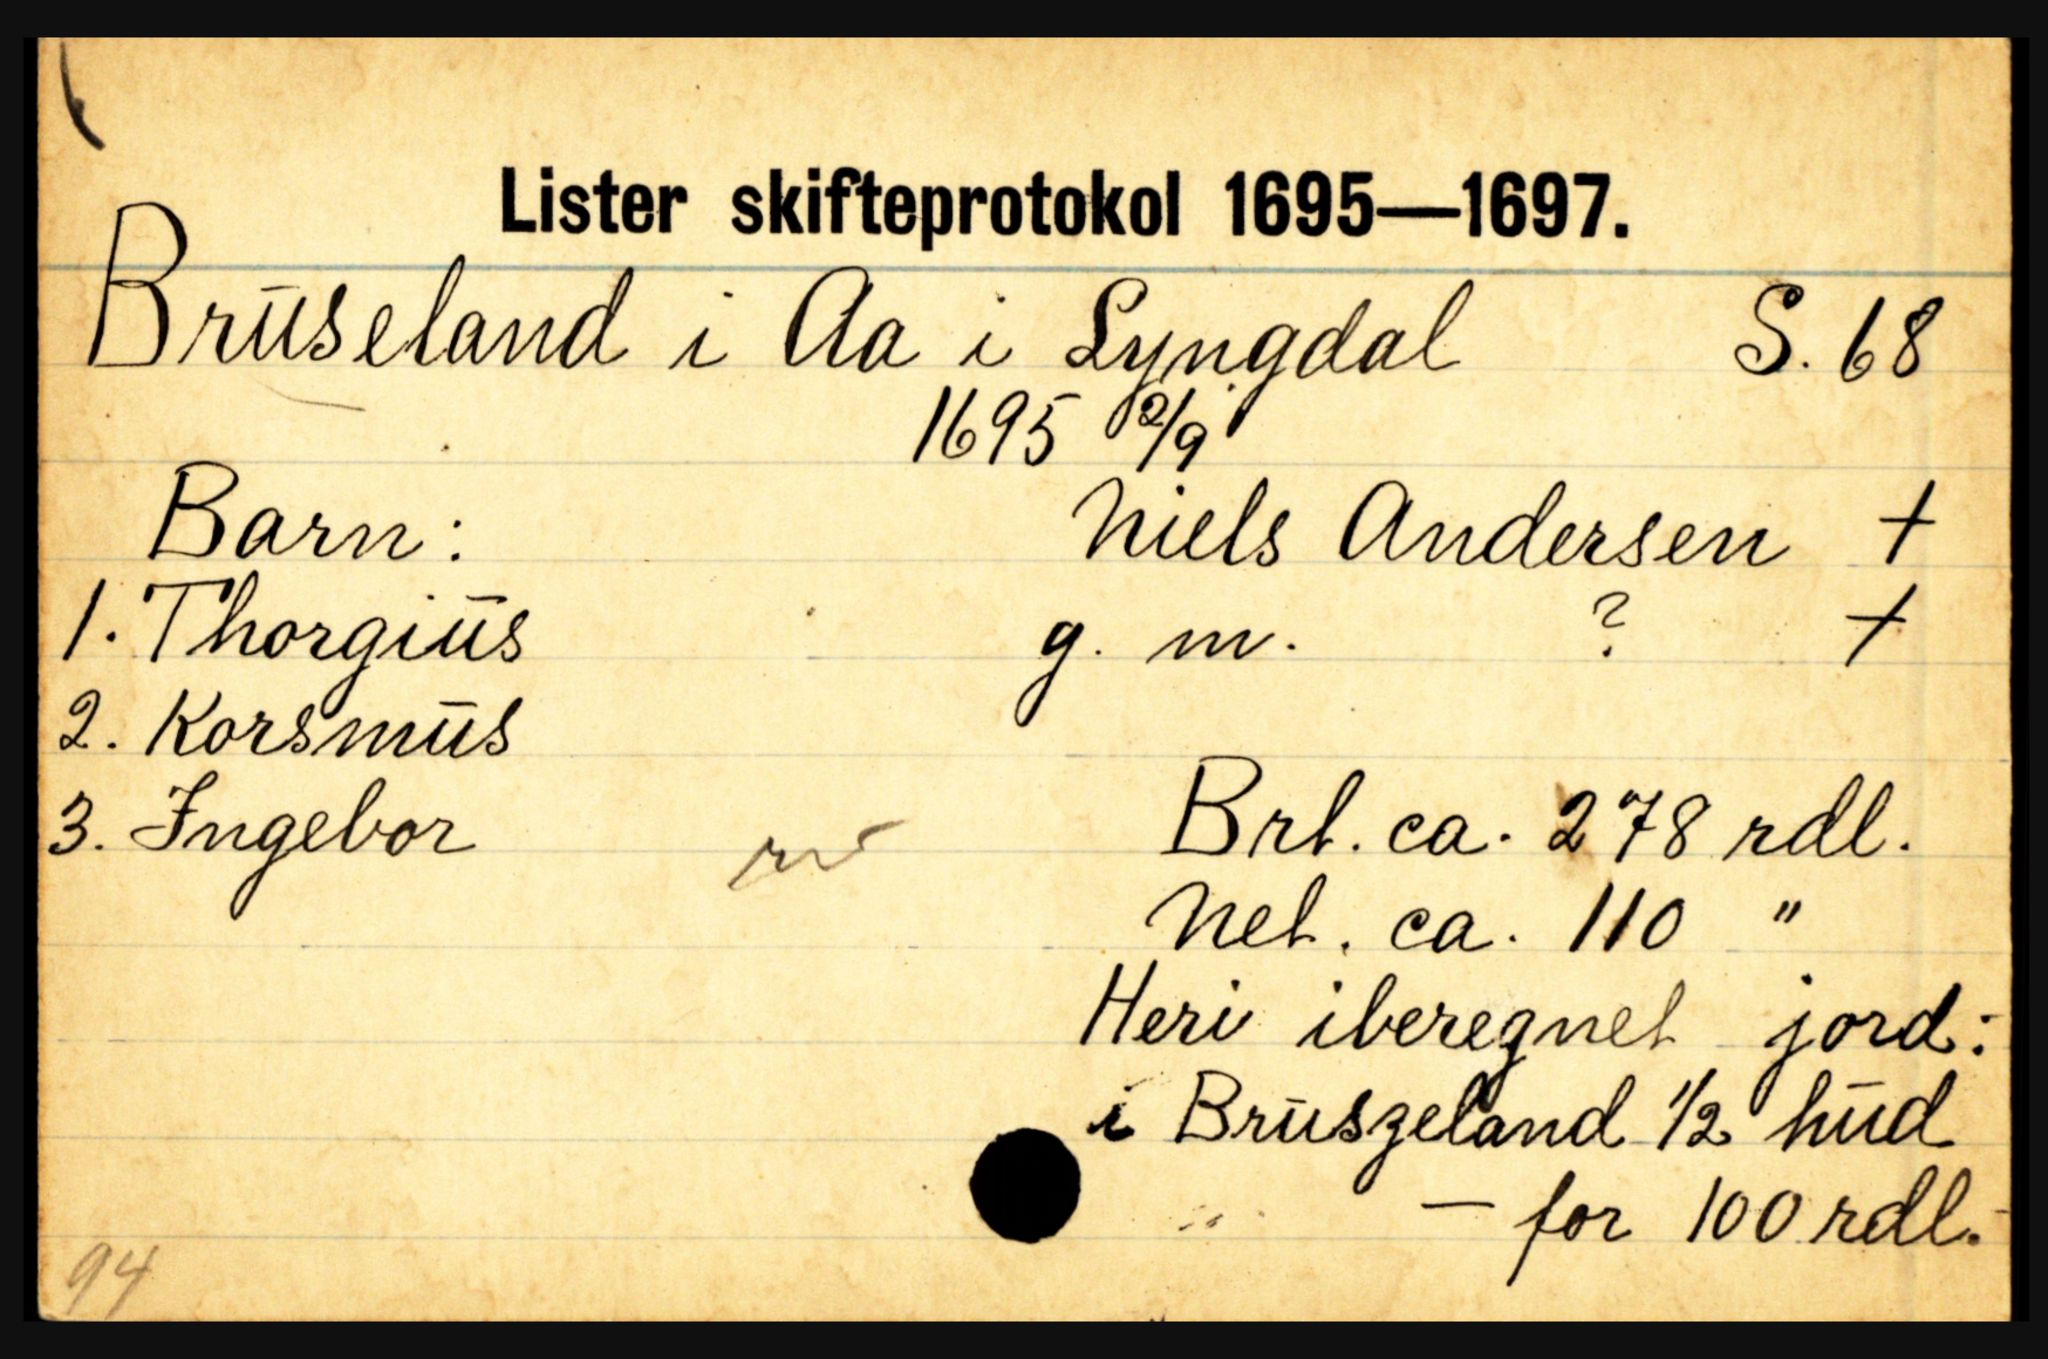 Lister skifteprotokol 1695—1697.
Bruseland i Aa i Lyngdal S. 68
1695 2/9
Barn: Niels Andersen +
1. Thorgius g. m. ? +
2. Korsmus
3. Ingebor Brt. ca. 278 rdl.
Net. ca. 110 "
Heri iberegnet jord:
i Bruszeland 1/2 hud
— for 100 rdl.
94